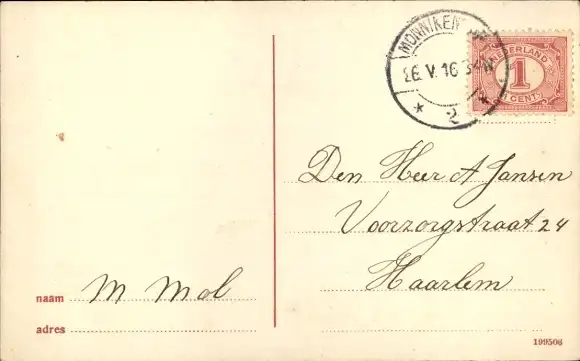 MONNIKEN
26.V.16 3-4N
2
NEDERLAND
1
CENT
Den Heer A Jansen
Voorzorgstraat 24
Haarlem
naam M Mol
adres
199506